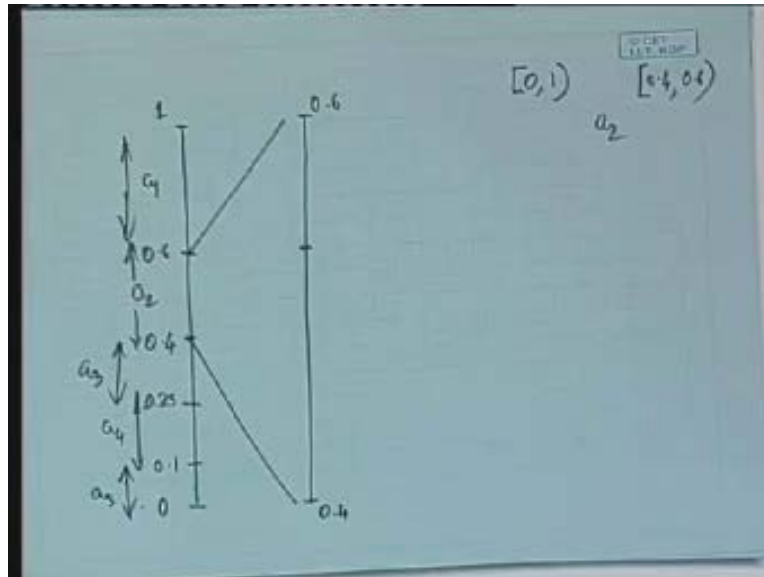 © CET
I.I.T. KGP
[0, 1) [0.4, 0.6)
a2
1 0.6
a1
0.6
a2
0.4
a3
0.25
a4
0.1
a5
0 0.4